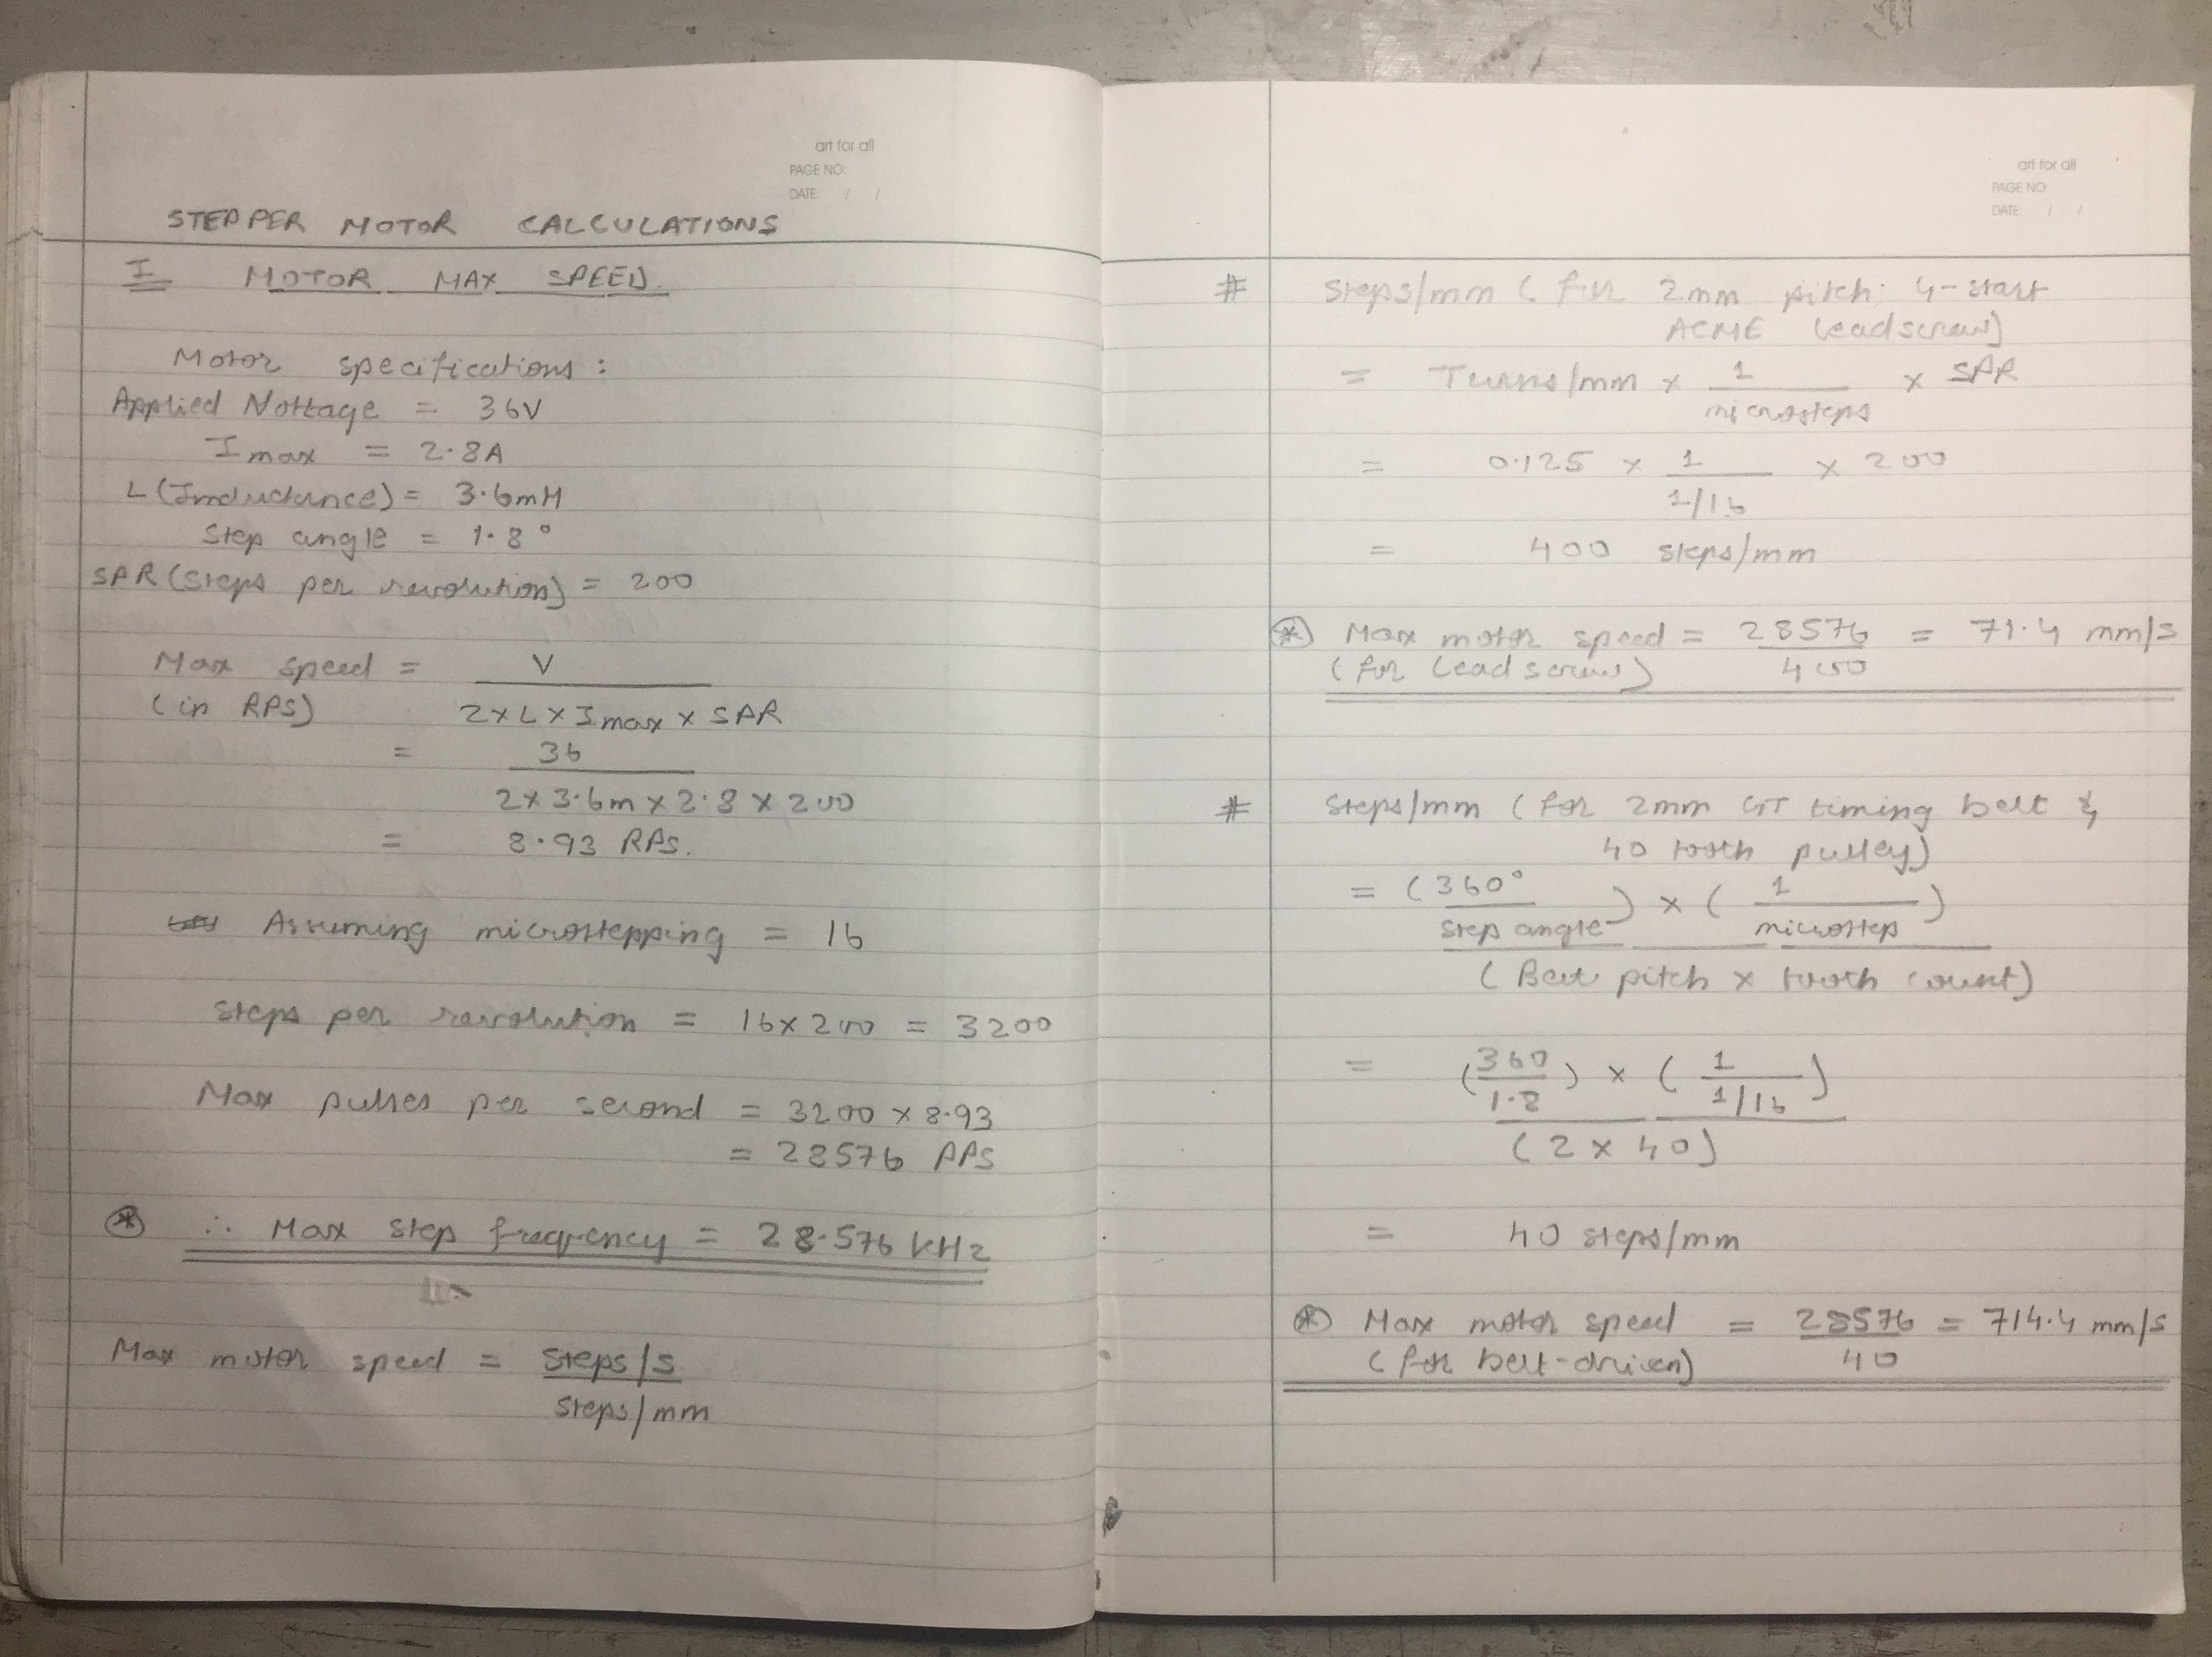 art for all
PAGE NO:
DATE: / /
STEPPER MOTOR CALCULATIONS
I MOTOR MAX SPEED.
Motor specifications :
Applied Voltage = 36V
Imax = 2.8A
L (Inductance) = 3.6mH
Step angle = 1.8°
SPR (Steps per revolution) = 200
Max speed = V
(in RPS) 2 x L x Imax x SPR
= 36
2 x 3.6m x 2.8 x 200
= 8.93 RPS.
Assuming microstepping = 16
Steps per revolution = 16 x 200 = 3200
Max pulses per second = 3200 x 8.93
= 28576 PPS
* ∴ Max step frequency = 28.576 KHz
Max motor speed = Steps/s
Steps/mm
art for all
PAGE NO:
DATE: / /
# Steps/mm ( for 2mm pitch; 4-start
ACME leadscrew)
= Turns/mm x 1 x SPR
microsteps
= 0.125 x 1 x 200
1/16
= 400 steps/mm
* Max motor speed = 28576 = 71.4 mm/s
( for leadscrew) 400
# Steps/mm ( for 2mm GT timing belt &
40 tooth pulley)
= ( 360° ) x ( 1 )
step angle microstep
( Belt pitch x tooth count)
= ( 360 ) x ( 1 )
1.8 1/16
( 2 x 40 )
= 40 steps/mm
* Max motor speed = 28576 = 714.4 mm/s
( for belt-driven) 40